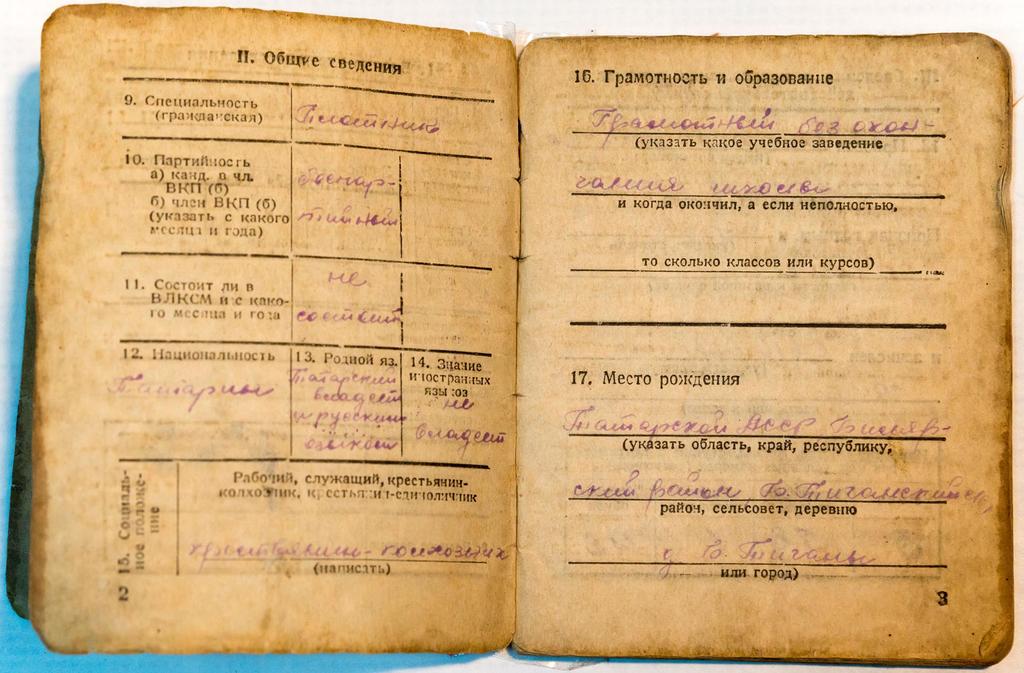 II. Общие сведения
9. Специальность
(гражданская)
Плотник
10. Партийность
а) канд. в чл.
ВКП (б)
б) член ВКП (б)
(указать с какого
месяца и года)
беспар-
тийный
11. Состоит ли в
ВЛКСМ и с како-
го месяца и года
не
состоит
12. Национальность
Татарин
13. Родной яз.
Татарский
владеет
и русским
языком
14. Знание
иностранных
языков
не
владеет
15. Социаль-
ное положе-
ние
Рабочий, служащий, крестьянин-
колхозник, крестьянин-единоличник
крестьянин-колхозник
(написать)
2
16. Грамотность и образование
Грамотный без окон-
(указать какое учебное заведение
чания школы
и когда окончил, а если неполностью,
то сколько классов или курсов)
17. Место рождения
Татарской АССР Биляр-
(указать область, край, республику,
ский район, Б. Тиганский с/с,
район, сельсовет, деревню
д. Б. Тиганы
или город)
3